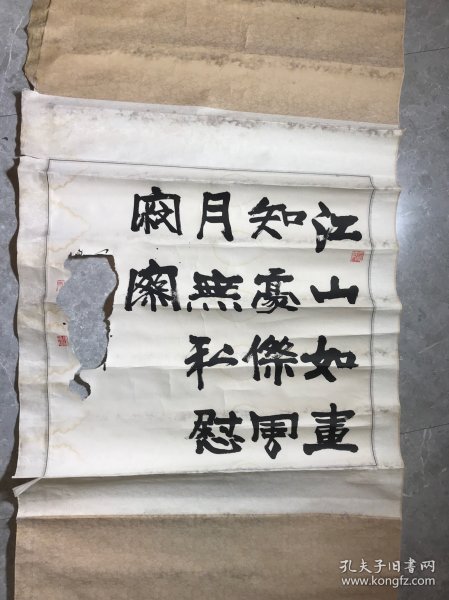 江山如畫
知豪傑風
月無私慰
寂寥
孔夫子旧书网
www.kongfz.com